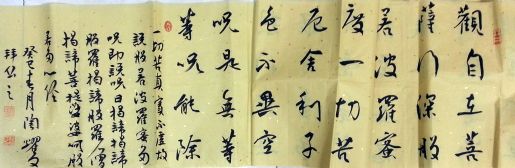 觀自在菩
薩行深般
若波羅蜜
度一切苦
厄舍利子
色不異空
咒是無等
等咒能除
一切苦真實不虛故
說般若波羅蜜多
咒即說咒曰揭諦揭諦
般羅揭諦般羅僧
揭諦菩提娑婆訶般
若多心经
癸巳七月陶